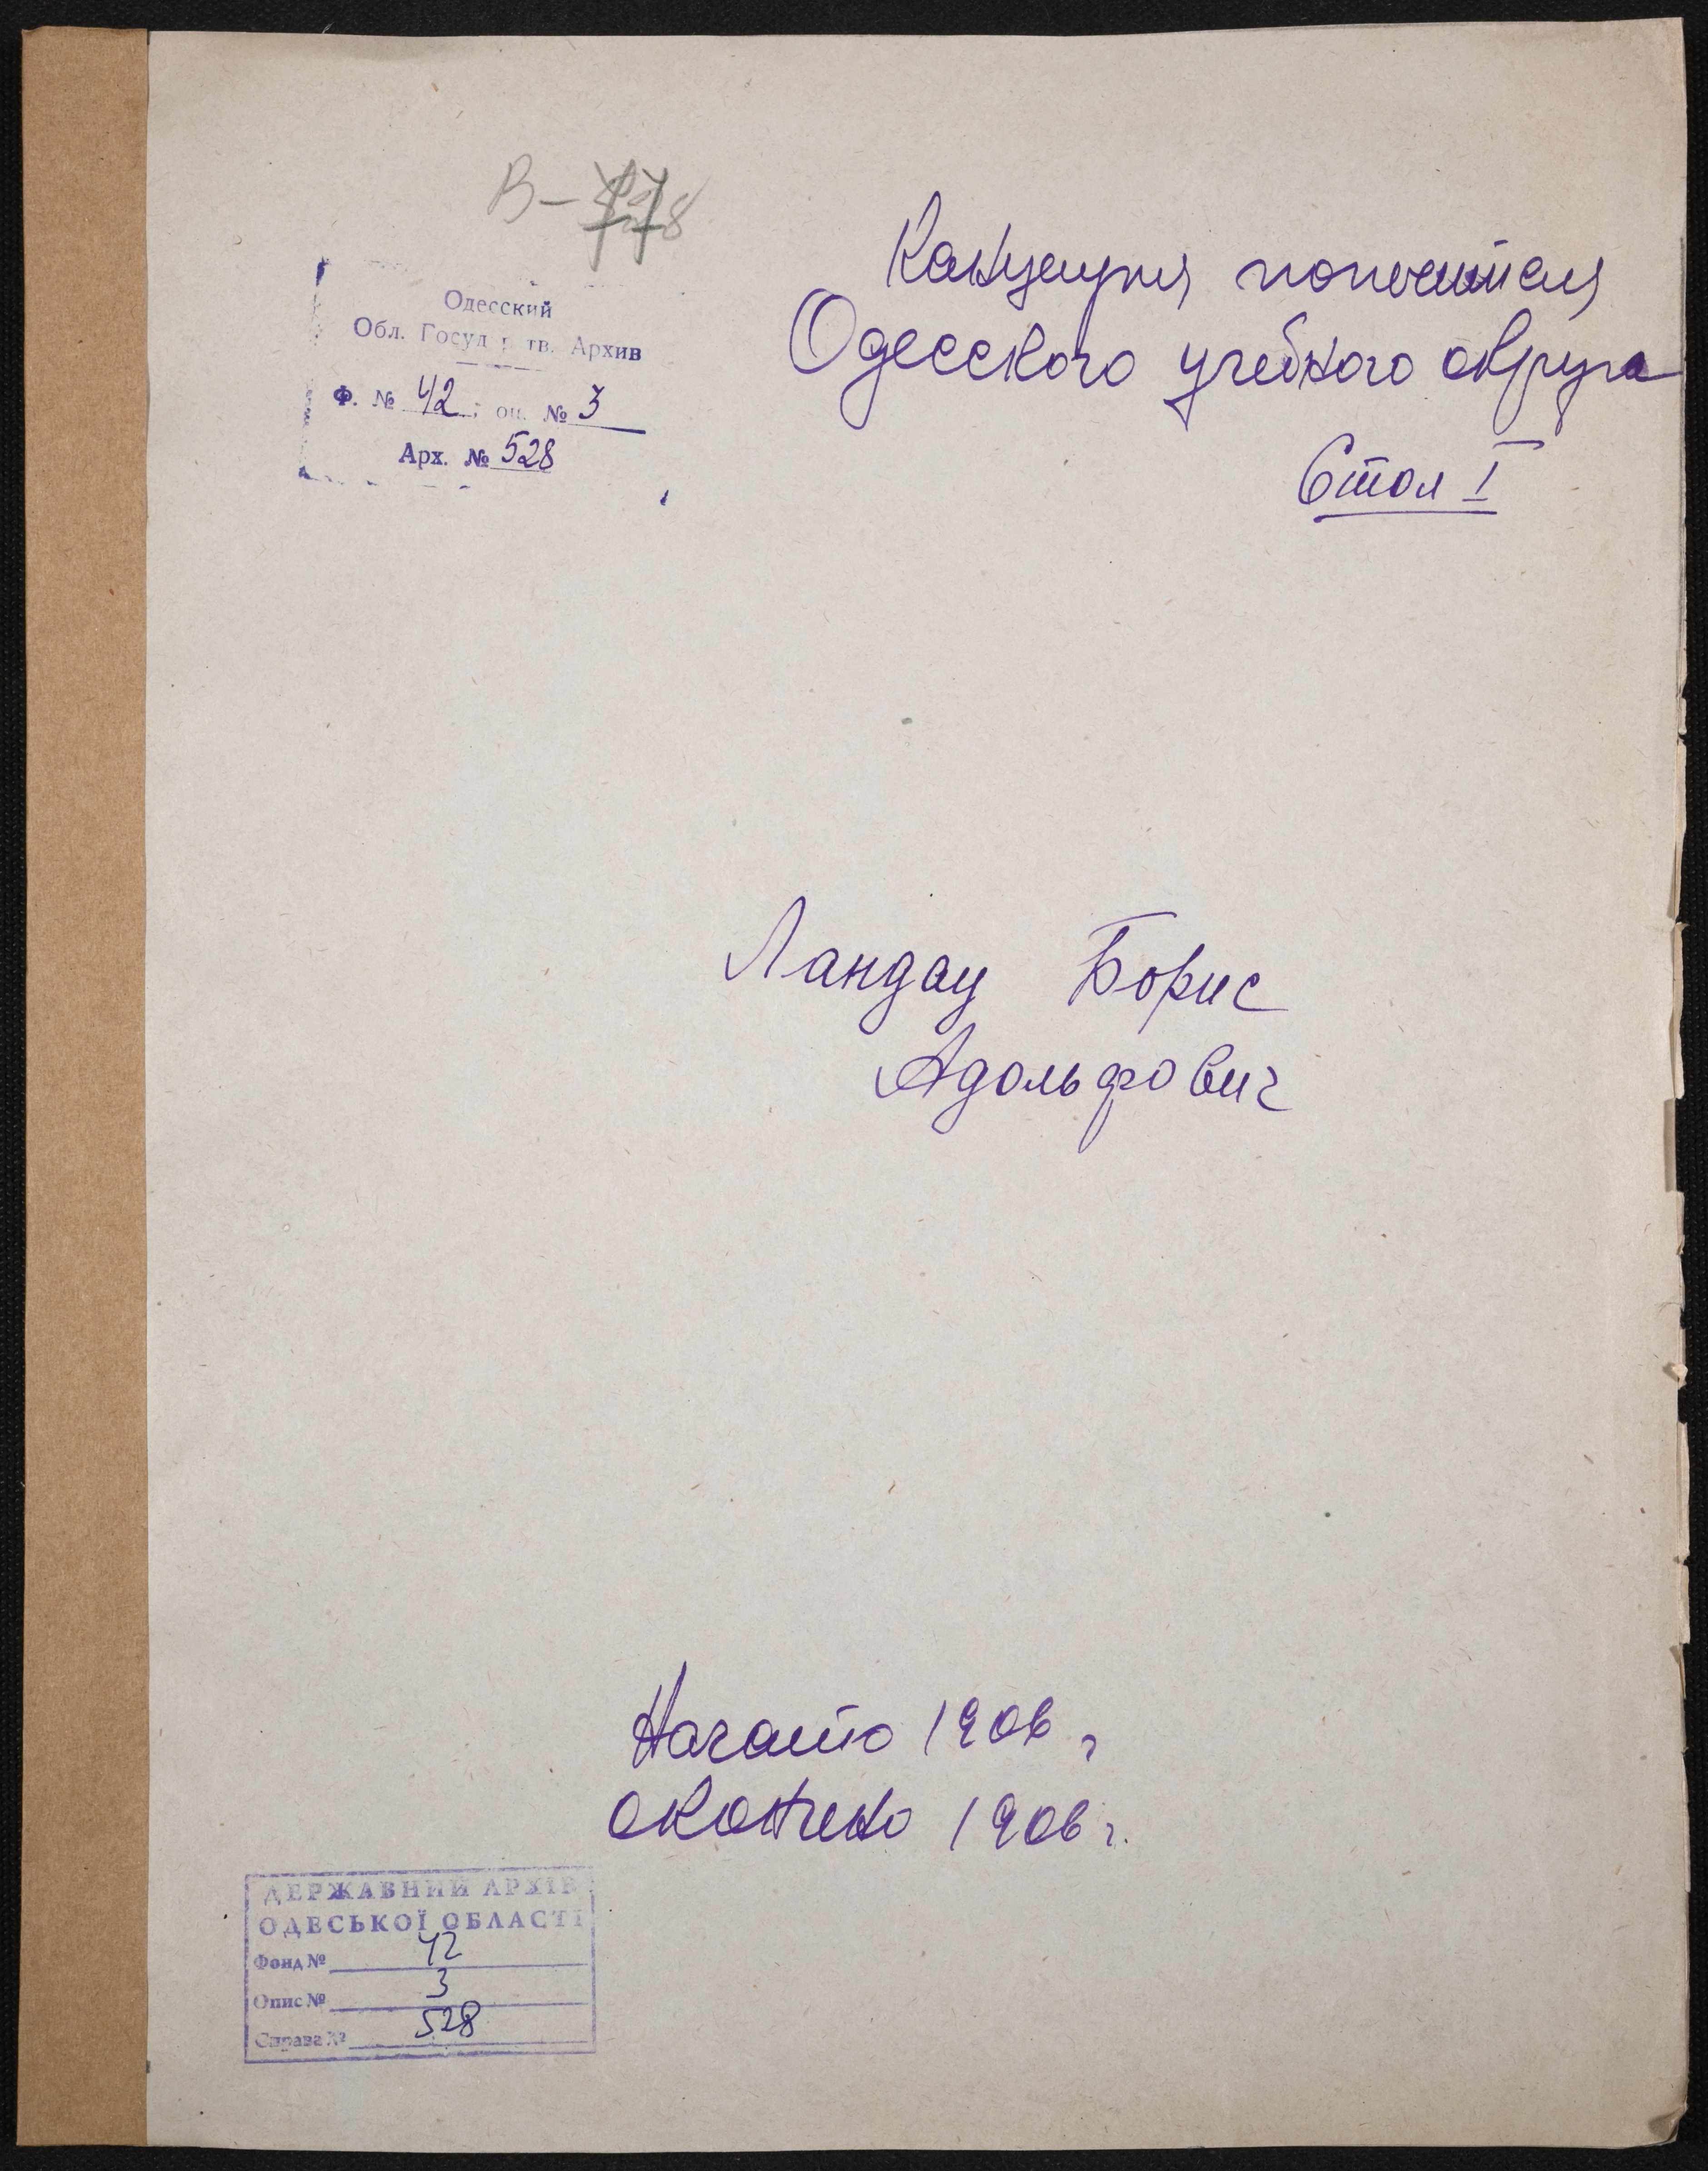 В-
Одесский
Обл. Госуд рств. Архив
Ф. № 42; оп. № 3
Арх. № 528
Канцелярия попечителя
Одесского учебного округа
Стол I
Ландау Борис
Адольфович
Начато 1906 г
окончено 1906 г.
ДЕРЖАВНИЙ АРХІВ
ОДЕСЬКОЇ ОБЛАСТІ
Фонд № 42
Опис № 3
Справа № 528